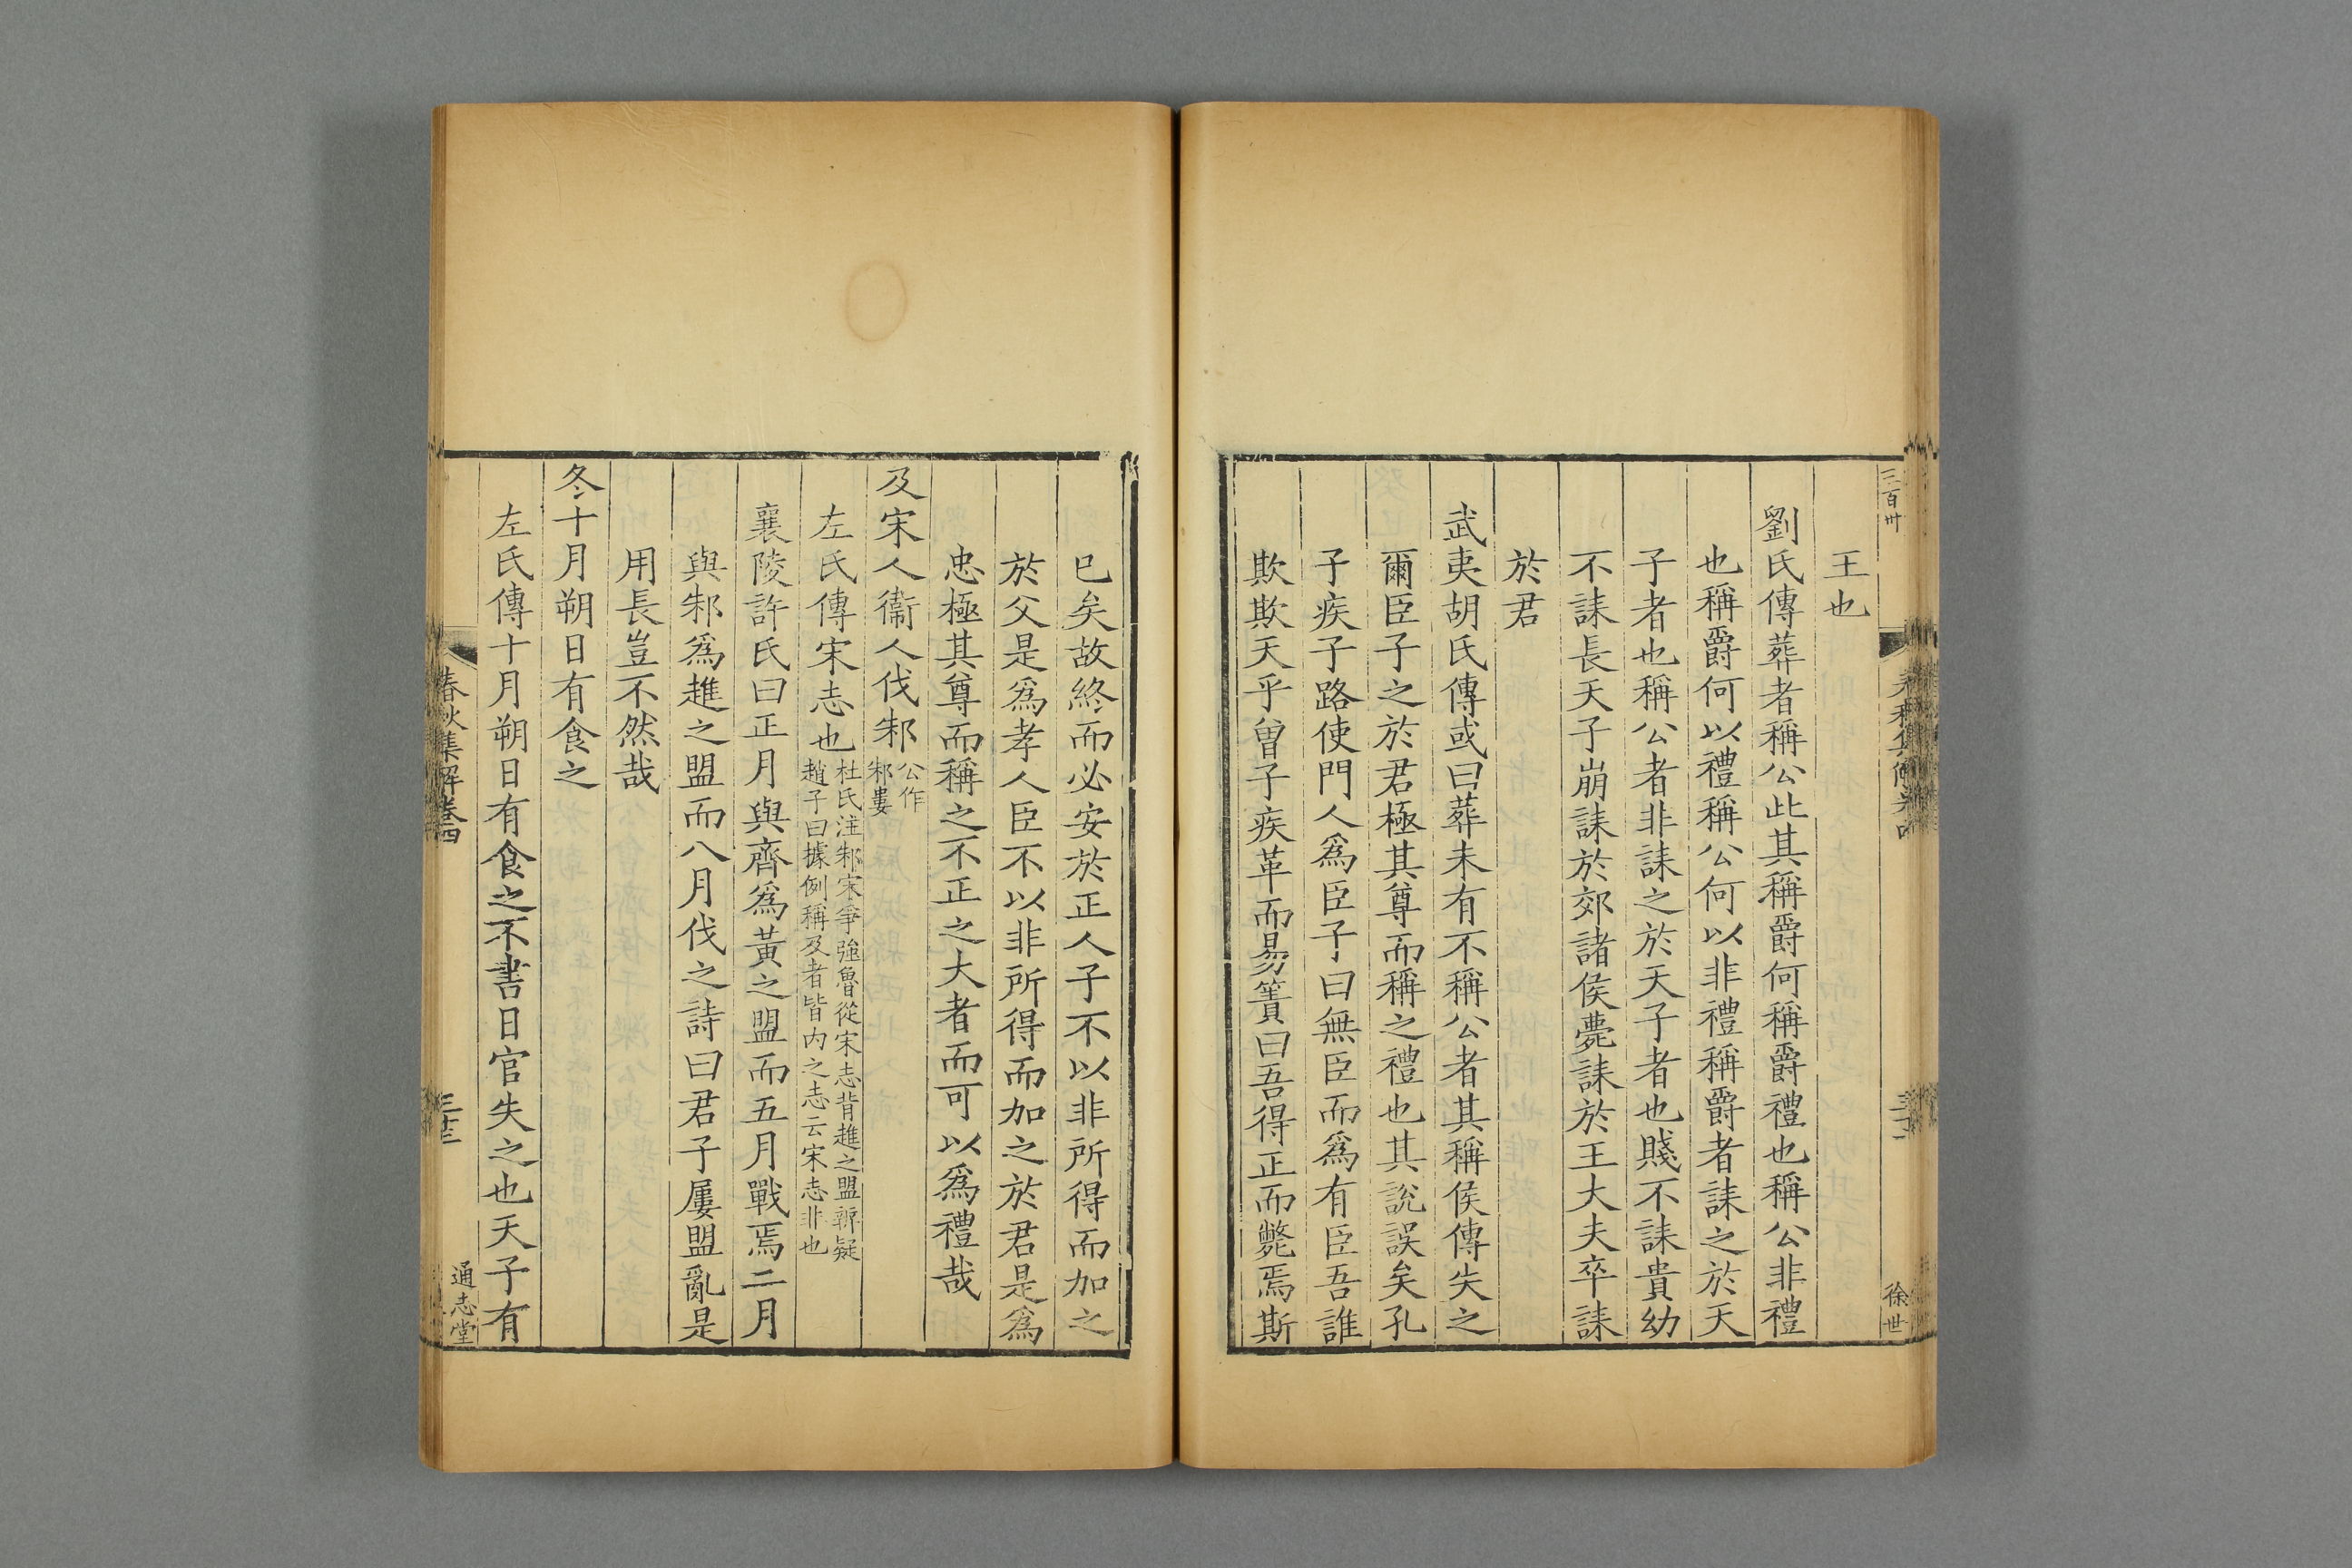 三百卅
春秋集解卷四
徐世
王也
劉氏傳葬者稱公此其稱爵何稱爵禮也稱公非禮
也稱爵何以禮稱公何以非禮稱爵者誄之於天
子者也稱公者非誄之於天子者也賤不誄貴幼
不誄長天子崩誄於郊諸侯薨誄於王大夫卒誄
於君
武夷胡氏傳或曰葬未有不稱公者其稱侯傳失之
爾臣子之於君極其尊而稱之禮也其說誤矣孔
子疾子路使門人爲臣子曰無臣而爲有臣吾誰
欺欺天乎曾子疾革而易簀曰吾得正而斃焉斯
已矣故終而必安於正人子不以非所得而加之
於父是爲孝人臣不以非所得而加之於君是爲
忠極其尊而稱之不正之大者而可以爲禮哉
及宋人衞人伐邾公作邾婁
左氏傳宋志也杜氏注邾宋爭強魯從宋志背趡之盟辯疑
趙子曰據例稱及者皆內之志云宋志非也
襄陵許氏曰正月與齊爲黃之盟而五月戰焉二月
與邾爲趡之盟而八月伐之詩曰君子屢盟亂是
用長豈不然哉
冬十月朔日有食之
左氏傳十月朔日有食之不書日官失之也天子有
春秋集解卷四
三十三
通志堂